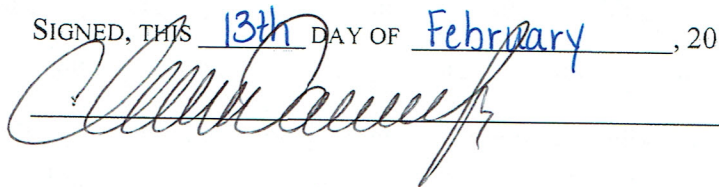 SIGNED, THIS 13th DAY OF February, 20